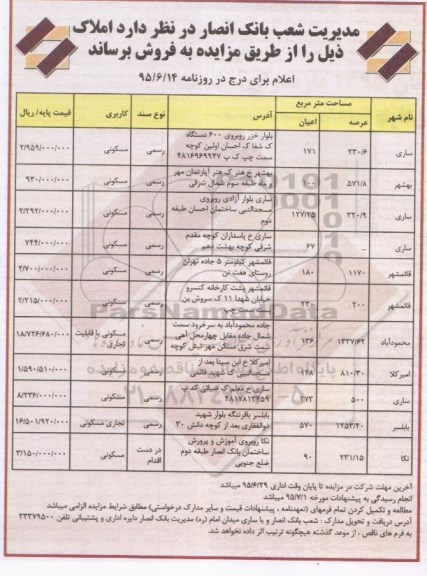 مدیریت شعب بانک انصار در نظر دارد املاک
ذیل را از طریق مزایده به فروش برساند
اعلام برای درج در روزنامه ۹۵/۶/۱۴
نام شهر مساحت متر مربع آدرس نوع سند کاربری قیمت پایه/ ریال
عرصه اعیان
ساری ۲۳۰/۶ ۱۷۱ بلوار خزر روبروی ۶۰۰ دستگاه رسمی مسکونی ۲/۹۵۹/۰۰۰/۰۰۰
ک شفا ک احسان اولین کوچه
سمت چپ ک پ ۴۸۱۶۹۶۹۹۴۷
بهشهر ۵۷۱/۸ ۱۰۰ بهشهر خ هنر ک هنر آپارتمان مهر رسمی مسکونی ۹۳۰/۰۰۰/۰۰۰
و ماه طبقه سوم شمال شرقی
ساری ۳۲۰/۹ ۱۲۷/۲۵ ساری بلوار آزادی روبروی رسمی مسکونی ۲/۲۹۲/۰۰۰/۰۰۰
مسجدالنبی ساختمان احسان طبقه
دوم
ساری ۶۷ ساری خ پاسداران کوچه مقدم رسمی مسکونی ۷۴۴/۰۰۰/۰۰۰
شرقی کوچه بهشت دهم
قائمشهر ۱۱۷۰ ۱۸۰ قائمشهر کیلومتر ۵ جاده تهران رسمی مسکونی ۲/۷۰۰/۰۰۰/۰۰۰
روستای هفت تن
قائمشهر ۲۰۰ ۲۳۰ قائمشهر پشت کارخانه کنسرو رسمی مسکونی ۲/۲۱۵/۰۰۰/۰۰۰
خیابان شهدا ۱۱ ک سروش بن
بست سمت چپ
محمودآباد ۱۳۳۷/۶۲ ۱۳۶ جاده محمودآباد به سرخرود سمت رسمی مسکونی با قابلیت تجاری ۱۸/۷۲۶/۶۸۰/۰۰۰
شمال جاده مقابل چهارمحل آهی
سمت شرق مسکن مهر نبش کوچه
امیرکلا ۸۱۰/۳۰ ۱۲۸ امیرکلا خ ابن سینا بعد از رسمی مسکونی ۱/۵۹۰/۵۱۰/۰۰۰
مسجدالنبی ک شهید قائمی
ساری ۵۰۰ ۲۷۳ ساری خ معلم ک ضیائی کد پ رسمی مسکونی ۸/۳۳۶/۰۰۰/۰۰۰
۴۸۱۷۸۱۳۴۵۹
بابلسر ۱۲۵۳/۴۰ ۵۷۰ بابلسر باقرتنگه بلوار شهید رسمی تجاری مسکونی ۱۶/۵۰۱/۹۲۰/۰۰۰
ذوالفقاری بعد از کوچه دانش ۳۰
نکا ۲۳۱/۱۵ ۹۰ نکا روبروی آموزش و پرورش در دست اقدام مسکونی ۳/۱۵۰/۰۰۰/۰۰۰
ساختمان بانک انصار طبقه دوم
ضلع جنوبی
آخرین مهلت شرکت در مزایده تا پایان وقت اداری ۹۵/۶/۲۹ میباشد
انجام رسیدگی به پیشنهادات مورخه ۹۵/۷/۱ میباشد
مطالعه و تکمیل کردن تمام فرمهای (تعهدنامه ، پیشنهادات قیمت و سایر مدارک درخواستی) مطابق شرایط مزایده الزامی میباشد
آدرس دریافت و تحویل مدارک : شعب بانک انصار و یا ساری میدان امام (ره) مدیریت بانک انصار دایره اداری و پشتیبانی تلفن ۳۳۳۷۹۵۰۰
به فرم های ناقص ، از موعد گذشته هیچگونه ترتیب اثر داده نخواهد شد.
ParsNamadData